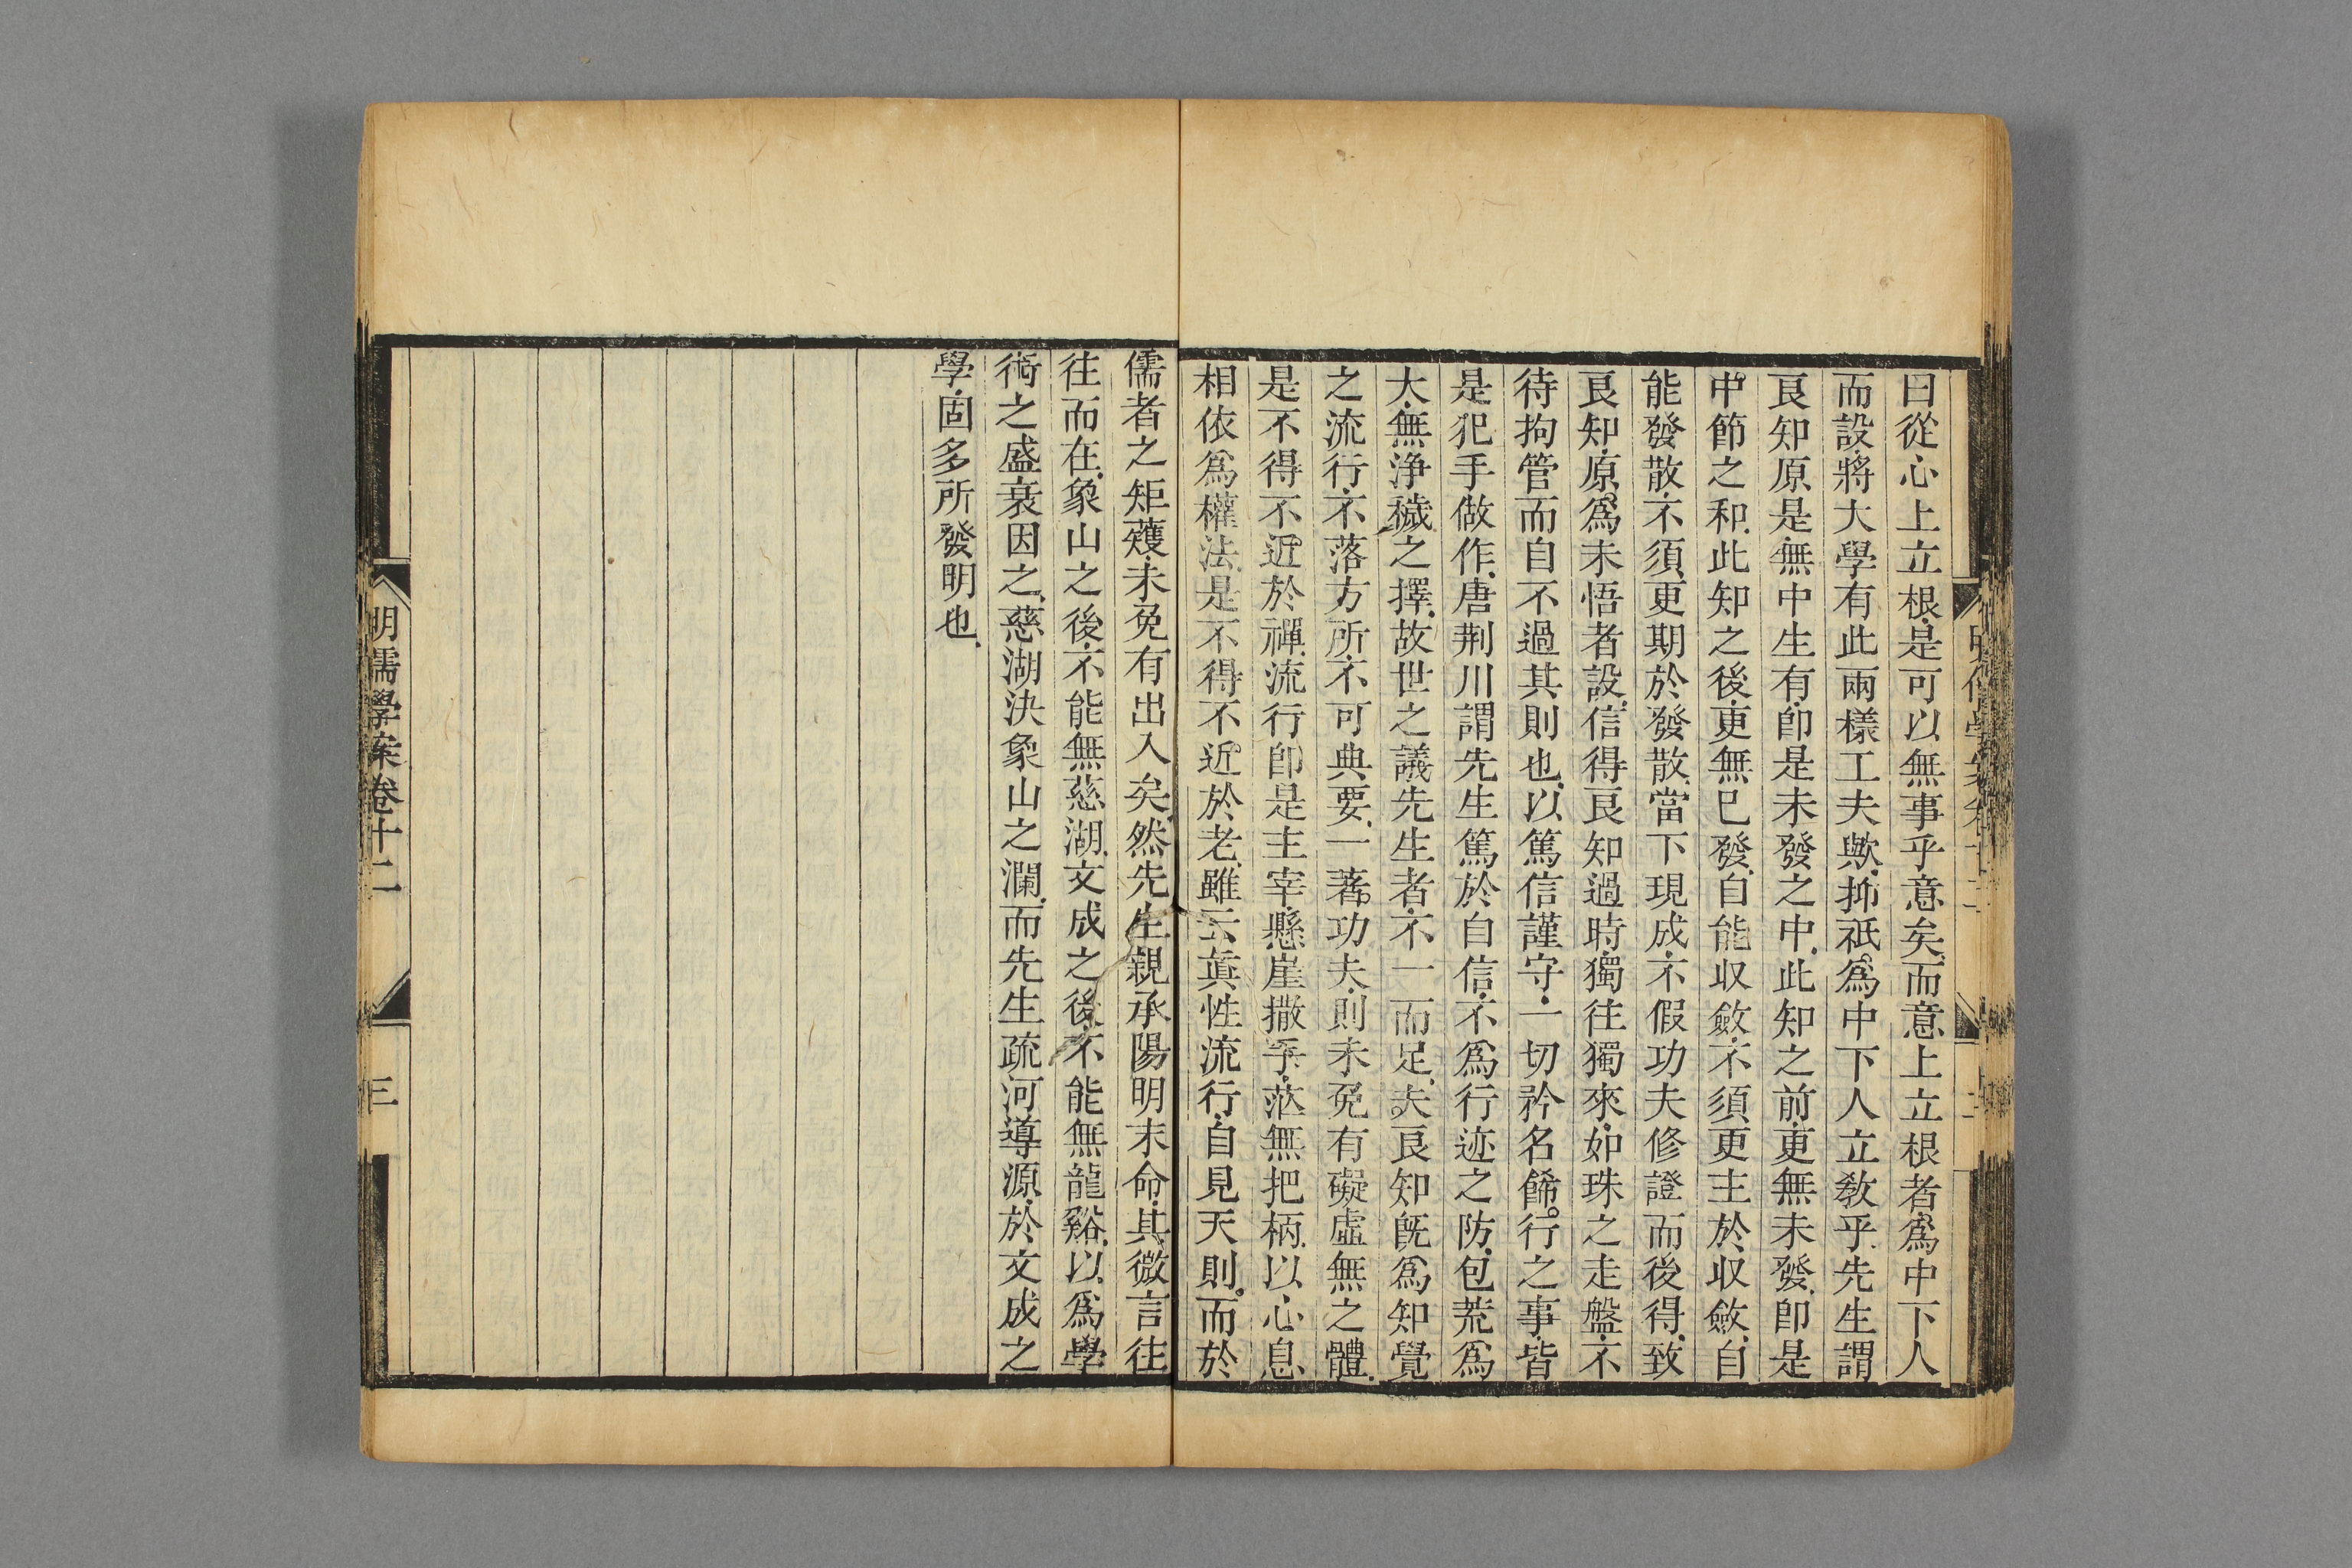 曰從心上立根是可以無事乎意矣而意上立根者爲中下人
而設將大學有此兩樣工夫歟抑祇爲中下人立教乎先生謂
良知原是無中生有卽是未發之中此知之前更無未發卽是
中節之和此知之後更無已發自能收斂不須更主於收斂自
能發散不須更期於發散當下現成不假功夫修證而後得致
良知原爲未悟者設信得良知過時獨往獨來如珠之走盤不
待拘管而自不過其則也以篤信謹守一切矜名飾行之事皆
是犯手做作唐荆川謂先生篤於自信不爲行迹之防包荒爲
大無淨穢之擇故世之議先生者不一而足夫良知旣爲知覺
之流行不落方所不可典要一著功夫則未免有礙虛無之體
是不得不近於禪流行卽是主宰懸崖撒手茫無把柄以心息
相依爲權法是不得不近於老雖云眞性流行自見天則而於
儒者之矩矱未免有出入矣然先生親承陽明末命其微言往
往而在象山之後不能無慈湖文成之後不能無龍谿以爲學
術之盛衰因之慈湖決象山之瀾而先生疏河導源於文成之
學固多所發明也
明儒學案卷十二
三